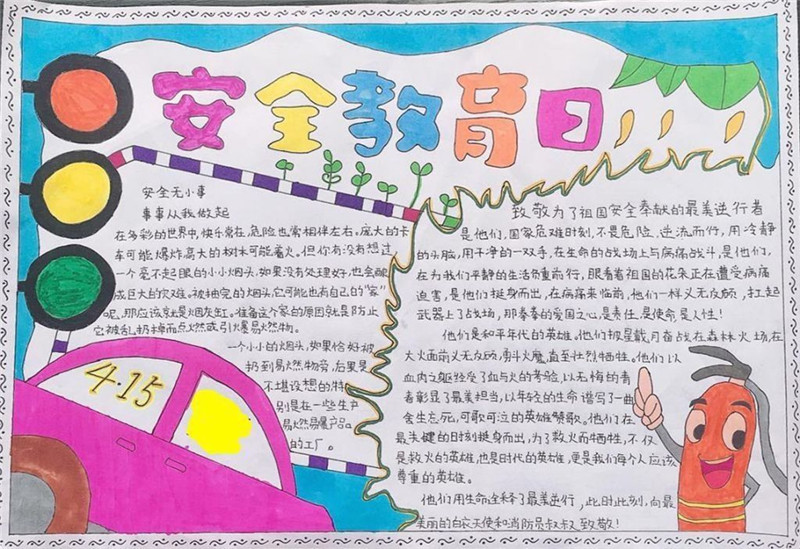 安全教育日
安全无小事
事事从我做起
在多彩的世界中,快乐常在,危险也常相伴左右。庞大的卡
车可能爆炸高大的树林可能着火。但你有没有想过
一个毫不起眼的小小烟头,如果没有处理好,也会酿
成巨大的灾难。被抽完的烟头,它可能也有自己的“家”
呢,那应该就是烟灰缸。准备这个家的原因就是防止
它被乱扔掉而点燃或引爆易燃物。
一个小小的烟头,如果恰好被
扔到易燃物旁,后果是
不堪设想的特
别是在一些生产
易燃易爆产品
的工厂。
4·15
致敬为了祖国安全奉献的最美逆行者
是他们,国家危难时刻,不畏危险、逆流而行,用冷静
的头脑,用干净的一双手,在生命的战场上与病痛战斗,是他们,
在为我们平静的生活负重前行,眼看着祖国的花朵正在遭受病痛
迫害,是他们挺身而出,在病痛来临前,他们一样义无反顾,扛起
武器上了战场,那春春的爱国之心,是责任,是使命是人生!
他们是和平年代的英雄。他们披星戴月奋战在森林火场,在
大火面前义无反顾,斩火魔,直至壮烈牺牲。他们以
血肉之躯经受了血与火的考验,以无悔的青
春彰显了最美担当,以年轻的生命谱写了一曲
舍生忘死,可歌可泣的英雄赞歌。他们在
最关键的时刻挺身而出,为了救火而牺牲,不仅
是救火的英雄,也是时代的英雄,更是我们每个人应该
尊重的英雄。
他们用生命诠释了最美逆行,此时此刻,向最
美丽的白衣天使和消防员叔叔致敬!